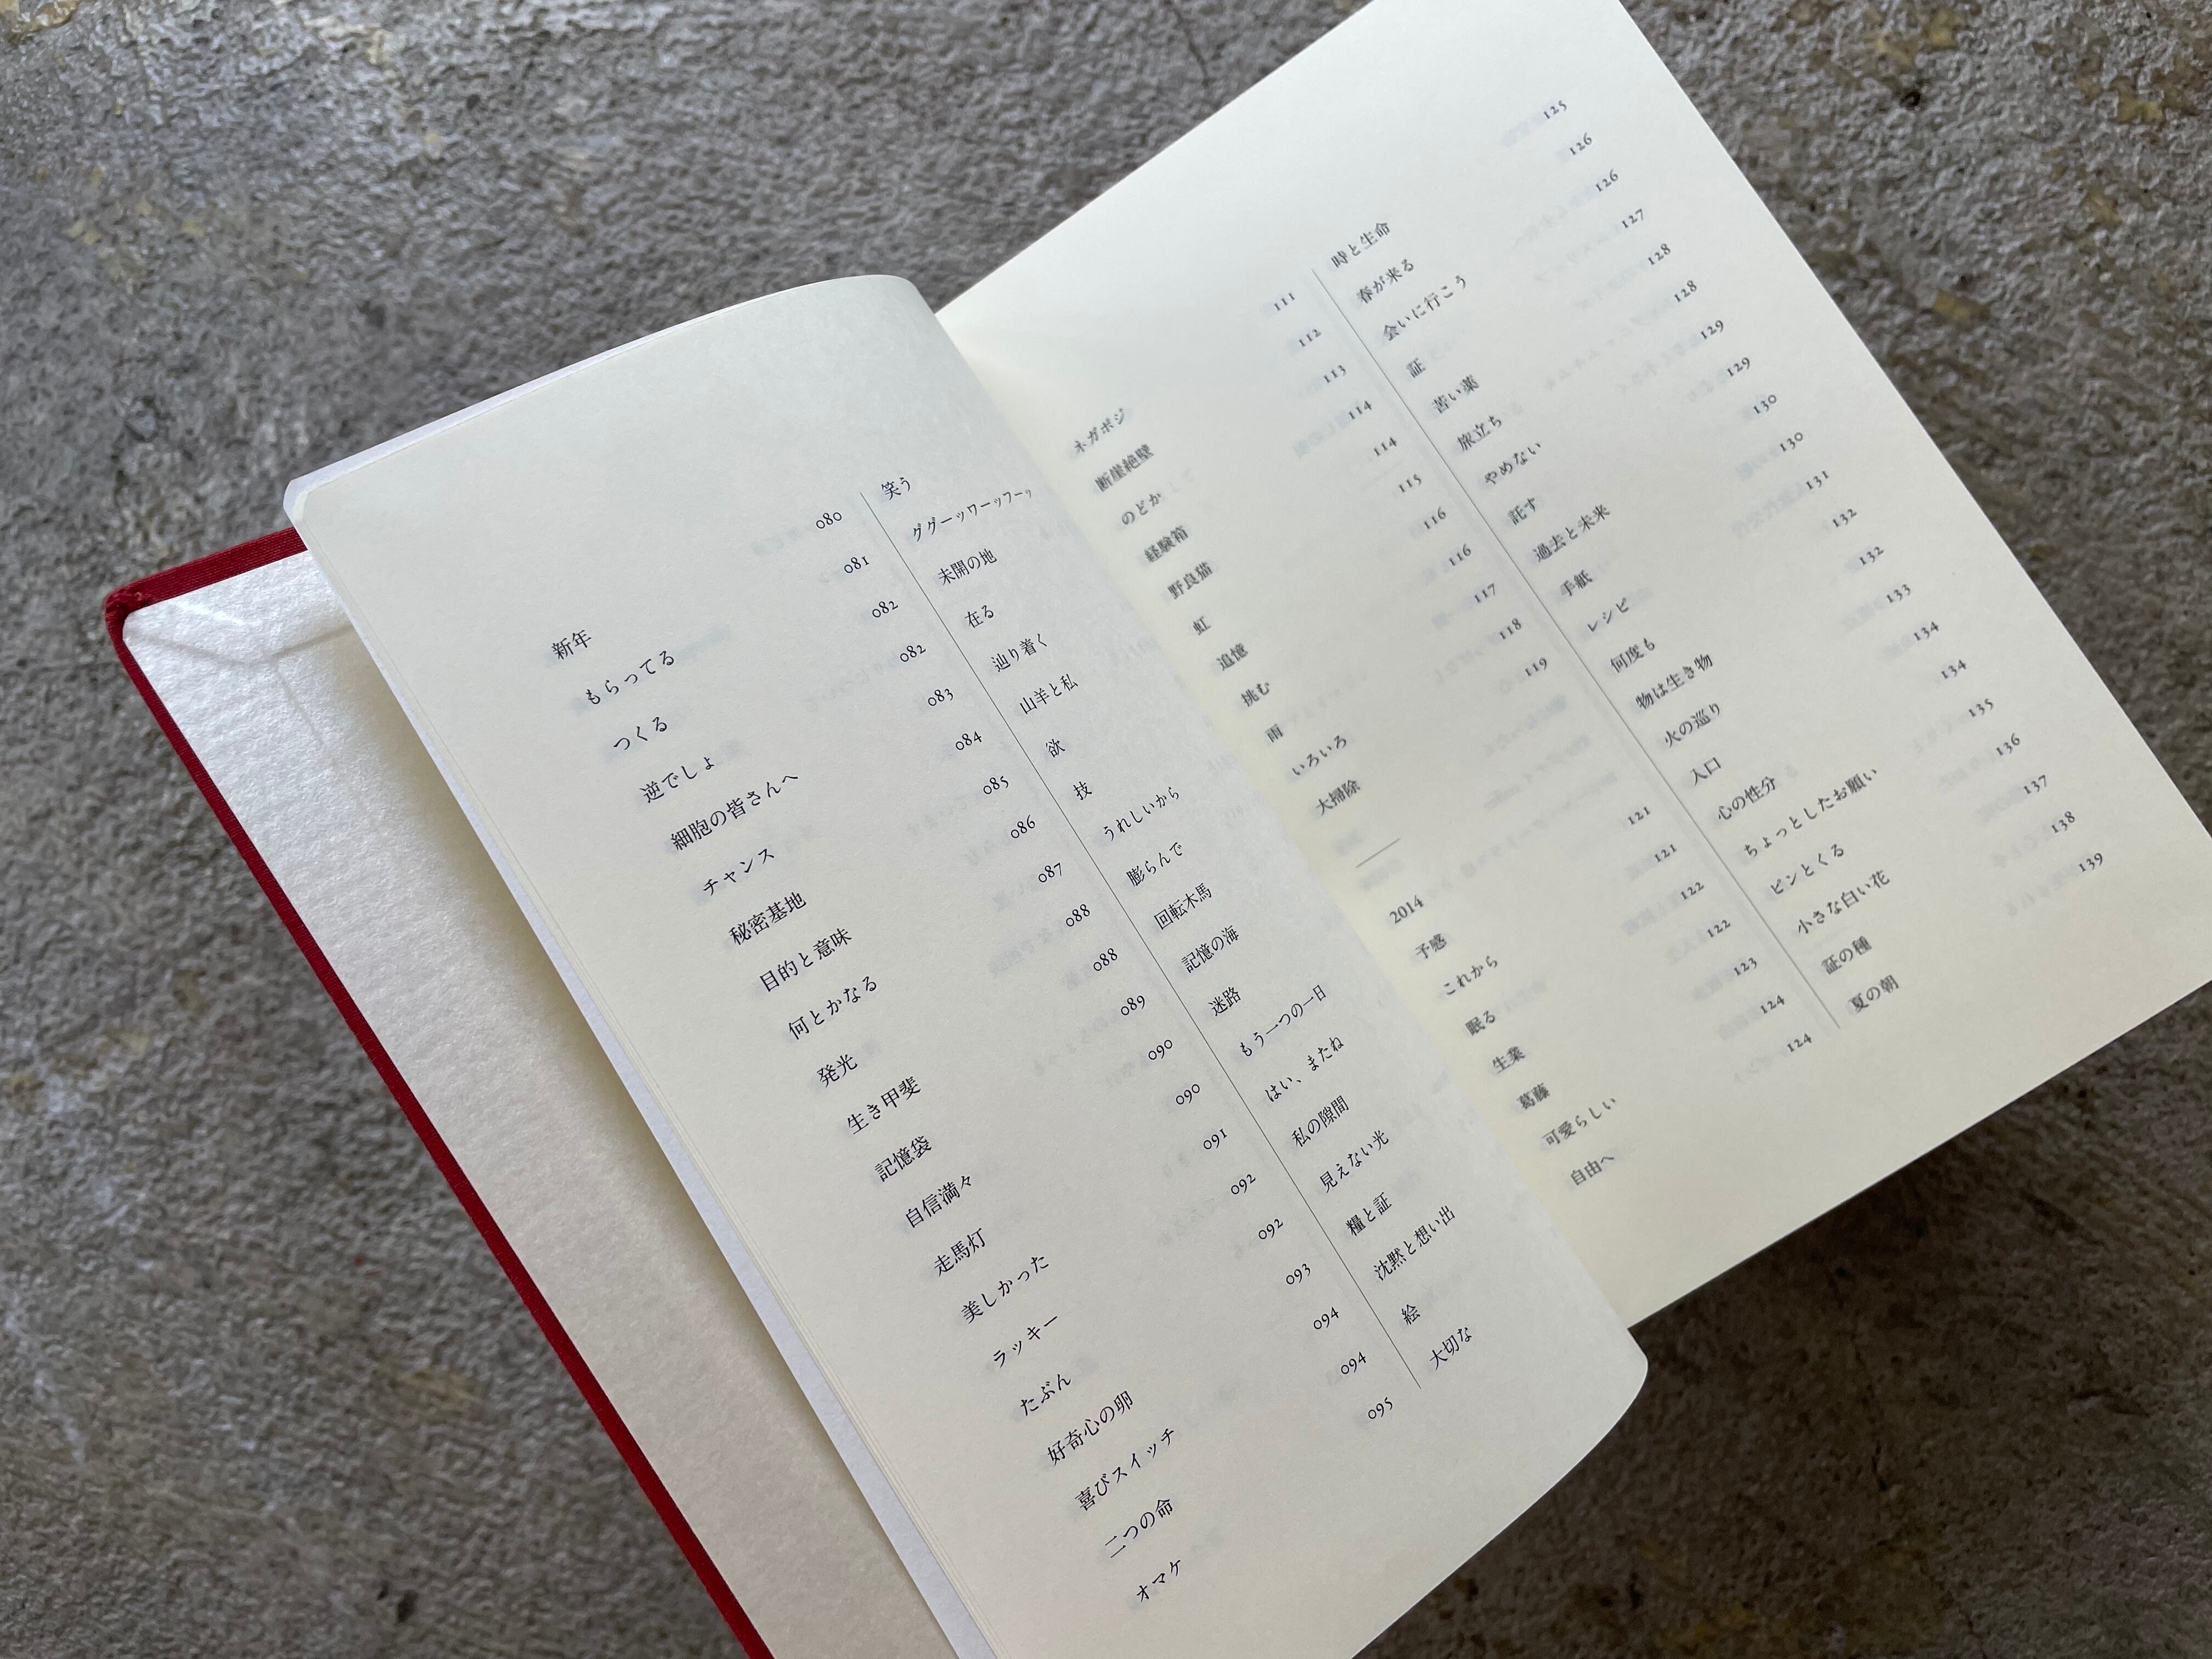 新年 080
もらってる 081
つくる 082
逆でしょ 082
細胞の皆さんへ 083
チャンス 084
秘密基地 085
目的と意味 086
何とかなる 087
発光 088
生き甲斐 088
記憶袋 089
自信満々 090
走馬灯 090
美しかった 091
ラッキー 092
たぶん 092
好奇心の卵 093
喜びスイッチ 094
二つの命 094
オマケ 095
笑う
ググーッワーッフーッ
未開の地
在る
辿り着く
山羊と私
欲
技
うれしいから
膨らんで
回転木馬
記憶の海
迷路
もう一つの一日
はい、またね
私の隙間
見えない光
糧と証
沈黙と想い出
絵
大切な
ネガポジ 111
断崖絶壁 112
のどか 113
経験箱 114
野良猫 114
虹 115
追憶 116
挑む 116
雨 117
いろいろ 118
大掃除 119
2014
予感 121
これから 121
眠る 122
生業 122
葛藤 123
可愛らしい 124
自由へ 124
時と生命 125
春が来る 126
会いに行こう 126
証 127
苦い薬 128
旅立ち 128
やめない 129
託す 129
過去と未来 130
手紙 130
レシピ 131
何度も 132
物は生き物 132
火の巡り 133
入口 134
心の性分 134
ちょっとしたお願い 135
ピンとくる 136
小さな白い花 137
証の種 138
夏の朝 139